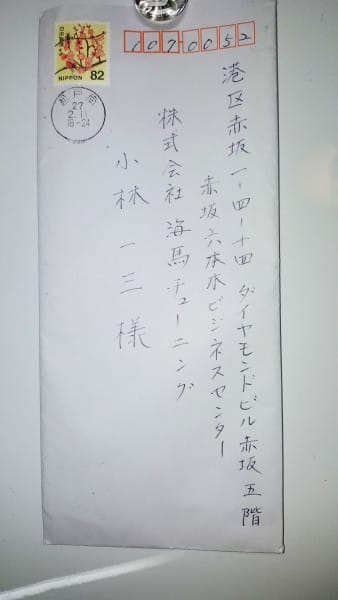 1070052
港区赤坂一-四-十四 ダイヤモンドビル赤坂五階
赤坂六本木ビジネスセンター
株式会社 海馬チューニング
小林一三様
日本郵便
NIPPON 82
27
2.11
18-24